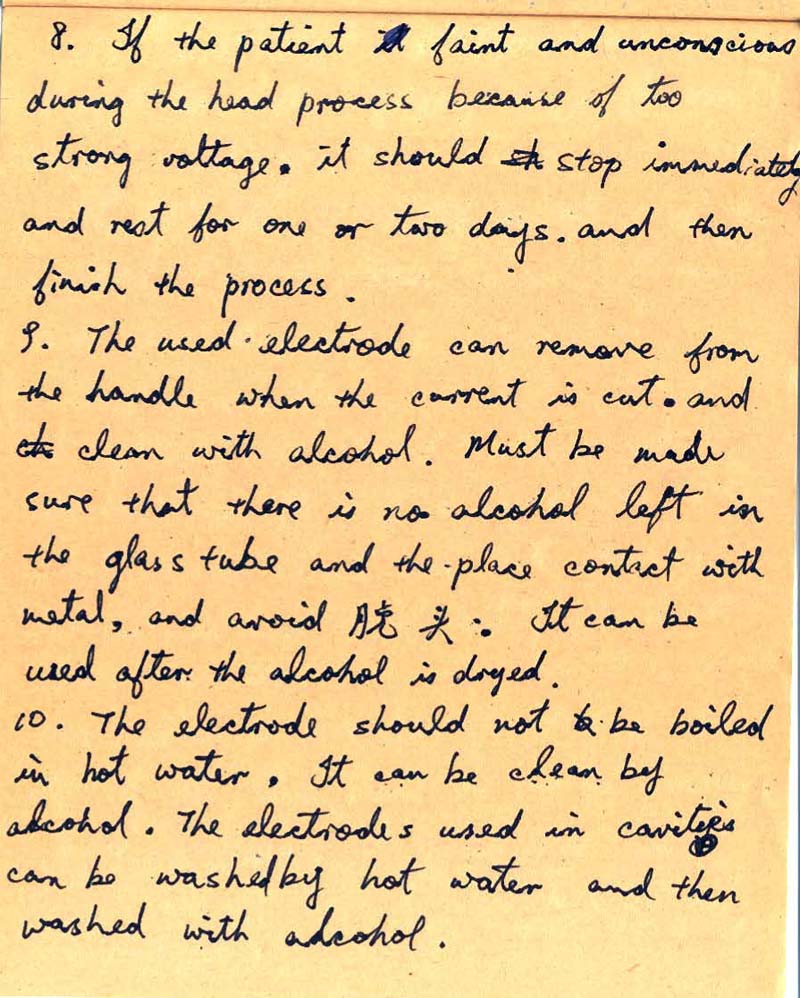 8. If the patient faint and unconscious
during the head process because of too
strong voltage. it should stop immediately
and rest for one or two days. and then
finish the process.
9. The used electrode can remove from
the handle when the current is cut. and
clean with alcohol. Must be made
sure that there is no alcohol left in
the glass tube and the place contact with
metal, and avoid 脱头. It can be
used after the alcohol is dryed.
10. The electrode should not be boiled
in hot water. It can be clean by
alcohol. The electrodes used in cavities
can be washed by hot water and then
washed with alcohol.